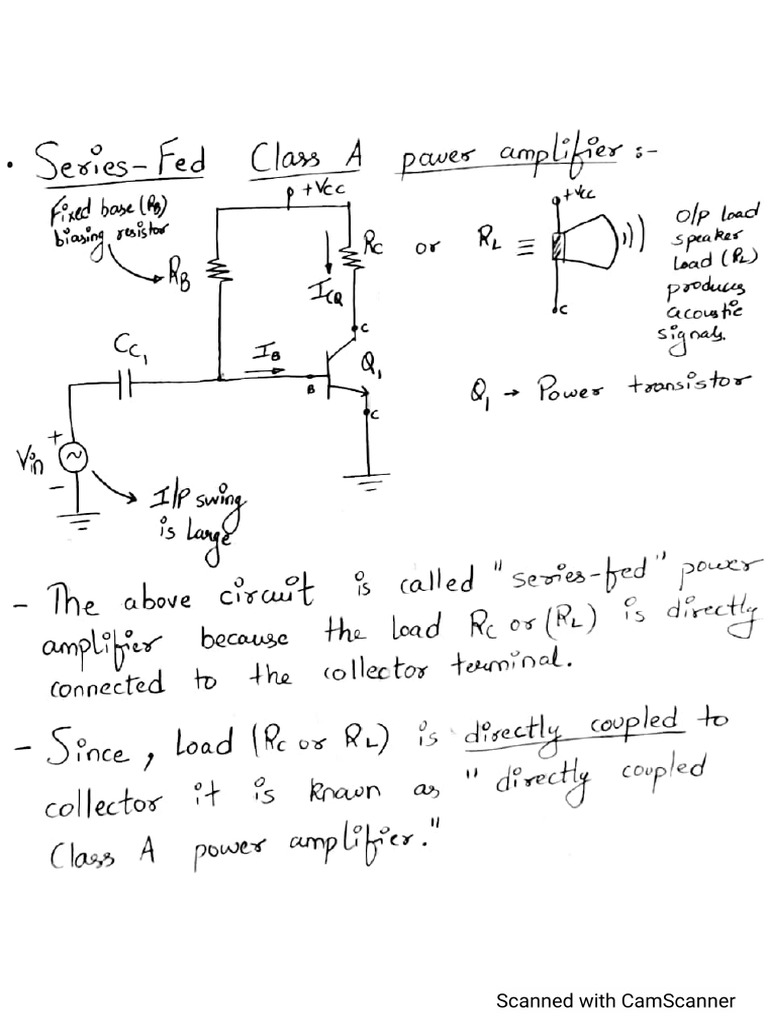 • Series-Fed Class A power amplifier :-
Fixed base (RB)
biasing resistor
+Vcc
RB
Rc
ICQ
or
RL ≡
+Vcc
C
O/P Load
speaker
Load (RL)
produces
acoustic
signals.
CC1
IB
B
C
Q1
C
Q1 → Power transistor
Vin
+
~
-
I/P swing
is Large
- The above circuit is called "series-fed" power
amplifier because the load Rc or (RL) is directly
connected to the collector terminal.
- Since, Load (Rc or RL) is directly coupled to
collector it is known as "directly coupled
Class A power amplifier."
Scanned with CamScanner